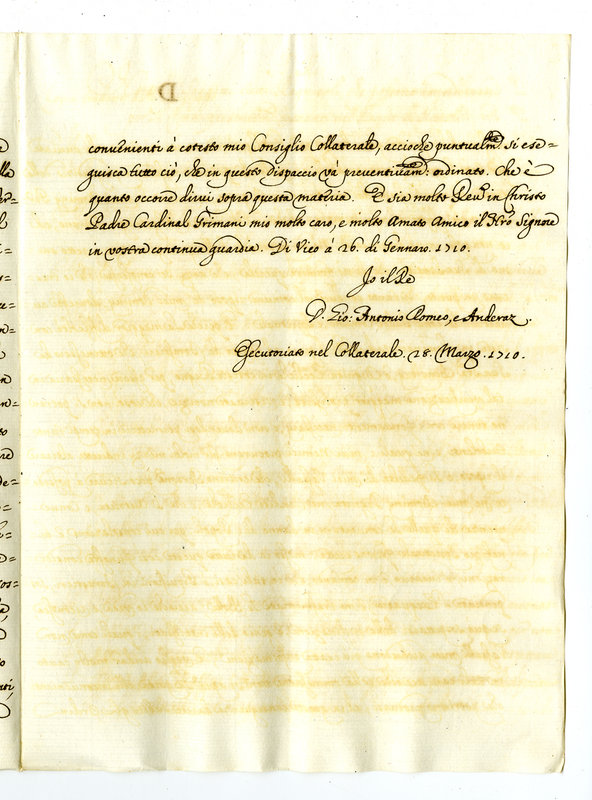 D
convenienti à cotesto mio Consiglio Collaterale, accioche puntualm.te si ese=
guisca tutto ciò, che in questo Dispaccio và preventivam.te ordinato. Che è
quanto occorre dirvi sopra questa materia. E sia molto Reu.o in Christo
Padre Cardinal Grimani mio molto caro, e molto Amato Amico il Nro Signore
in vostra continua guardia. Di Vico à 26. di Gennaro. 1710.
Io il Re
D. Gio: Antonio Romeo, e Anderaz.
Esecutoriato nel Collaterale. 28. Marzo. 1710.